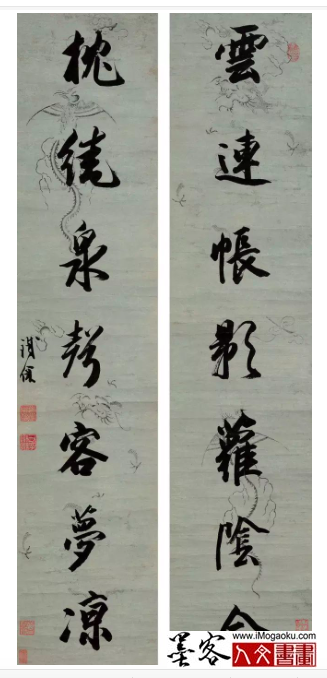 雲連帳影蘿陰
枕繞泉聲客夢涼
墨客
www.iMogaoku.com
人文書畫